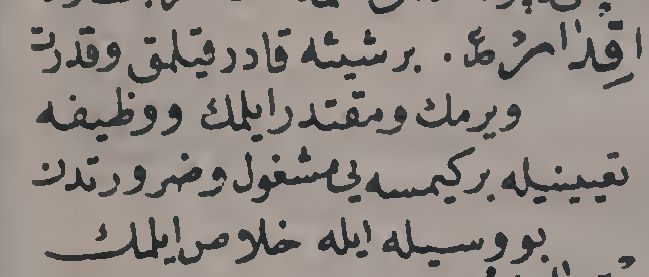 اقدار مص. بر شيئه قادر قيلمق وقدرت
ويرمك ومقتدر ايلمك ووظيفه
تعيينيله بر كيمسه يى مشغول وضرورتدن
بو وسيله ايله خلاص ايلمك